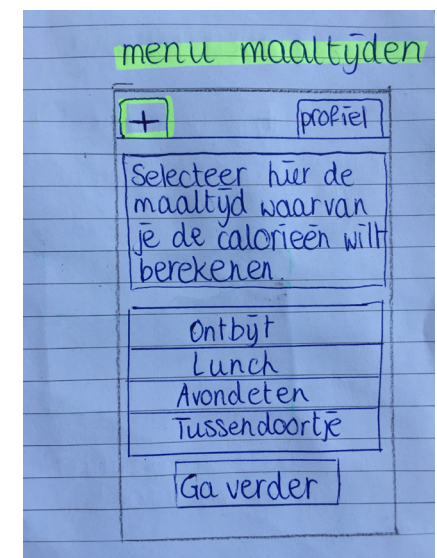 menu maaltijden
+ profiel
Selecteer hier de
maaltijd waarvan
je de calorieën wilt
berekenen.
Ontbijt
Lunch
Avondeten
Tussendoortje
Ga verder